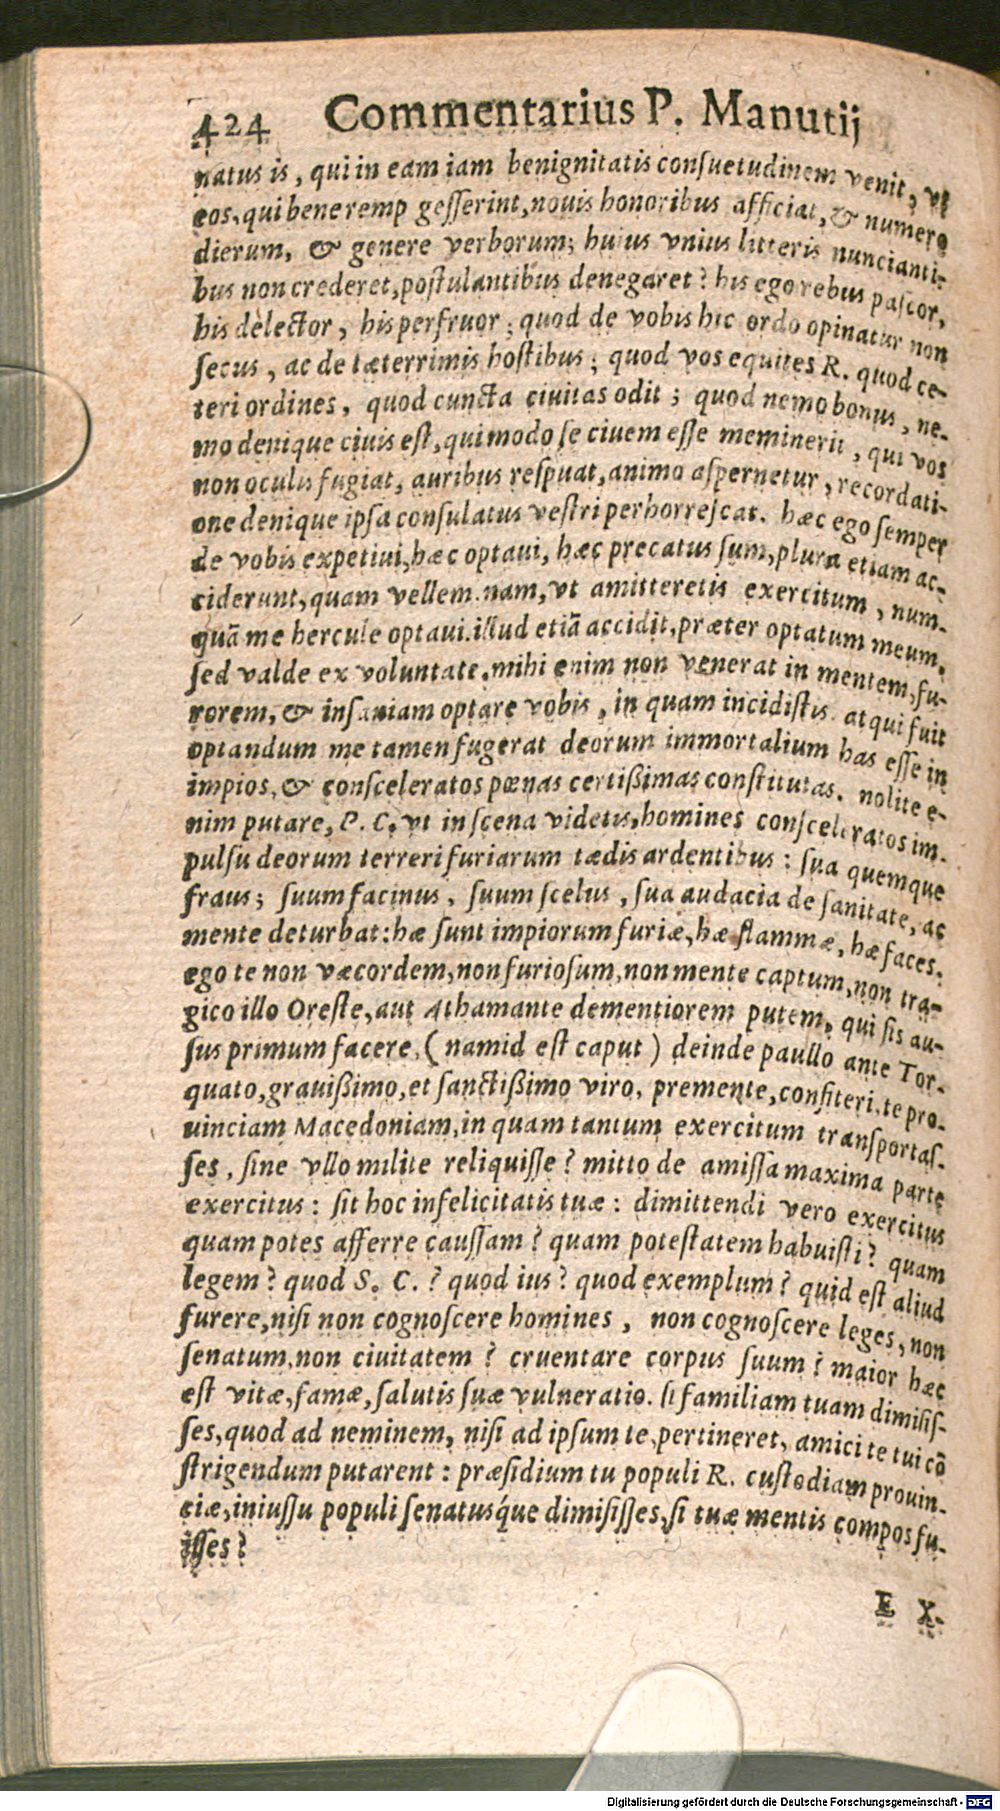 424 Commentarius P. Manutij
natus is, qui in eam iam benignitatis consuetudinem venit, vt
eos, qui bene remp gesserint, nouis honoribus afficiat, & numero
dierum, & genere verborum; huius vnius litteris nuncianti-
bus non crederet, postulantibus denegaret? his ego rebus pascor,
his delector, his perfruor; quod de vobis hic ordo opinatur non
secus, ac de tæterrimis hostibus; quod vos equites R. quod ce-
teri ordines, quod cuncta ciuitas odit; quod nemo bonus, ne-
mo denique ciuis est, qui modo se ciuem esse meminerit, qui vos
non oculis fugiat, auribus respuat, animo aspernetur, recordati-
one denique ipsa consulatus vestri perhorrescat. hæc ego semper
de vobis expetiui, hæc optaui, hæc precatus sum, plura etiam ac-
ciderunt, quam vellem. nam, vt amitteretis exercitum, num-
quã me hercule optaui. illud etiã accidit, præter optatum meum,
sed valde ex voluntate. mihi enim non venerat in mentem, fu-
rorem, & insaniam optare vobis, in quam incidistis. atqui fuit
optandum me tamen fugerat deorum immortalium has esse in
impios, & consceleratos pœnas certißimas constitutas. nolite e-
nim putare, P. C. vt in scena videtis, homines consceleratos im-
pulsu deorum terreri furiarum tædis ardentibus: sua quemque
fraus; suum facinus, suum scelus, sua audacia de sanitate, ac
mente deturbat: hæ sunt impiorum furiæ, hæ flammæ, hæ faces.
ego te non væcordem, non furiosum, non mente captum, non tra-
gico illo Oreste, aut Athamante dementiorem putem, qui sis au-
sus primum facere, (nam id est caput) deinde paullo ante Tor-
quato, grauißimo, et sanctißimo viro, premente, confiteri, te pro-
uinciam Macedoniam, in quam tantum exercitum transportas-
ses, sine vllo milite reliquisse? mitto de amissa maxima parte
exercitus: sit hoc infelicitatis tuæ: dimittendi vero exercitus
quam potes afferre caussam? quam potestatem habuisti? quam
legem? quod S. C.? quod ius? quod exemplum? quid est aliud
furere, nisi non cognoscere homines, non cognoscere leges, non
senatum, non ciuitatem? cruentare corpus suum? maior hæc
est vitæ, famæ, salutis suæ vulneratio. si familiam tuam dimisis-
ses, quod ad neminem, nisi ad ipsum te pertineret, amici te tui cõ
strigendum putarent: præsidium tu populi R. custodiam prouin-
ciæ, iniussu populi senatusq́ue dimisisses, si tuæ mentis compos fu-
isses?
E X-
Digitalisierung gefördert durch die Deutsche Forschungsgemeinschaft - DFG